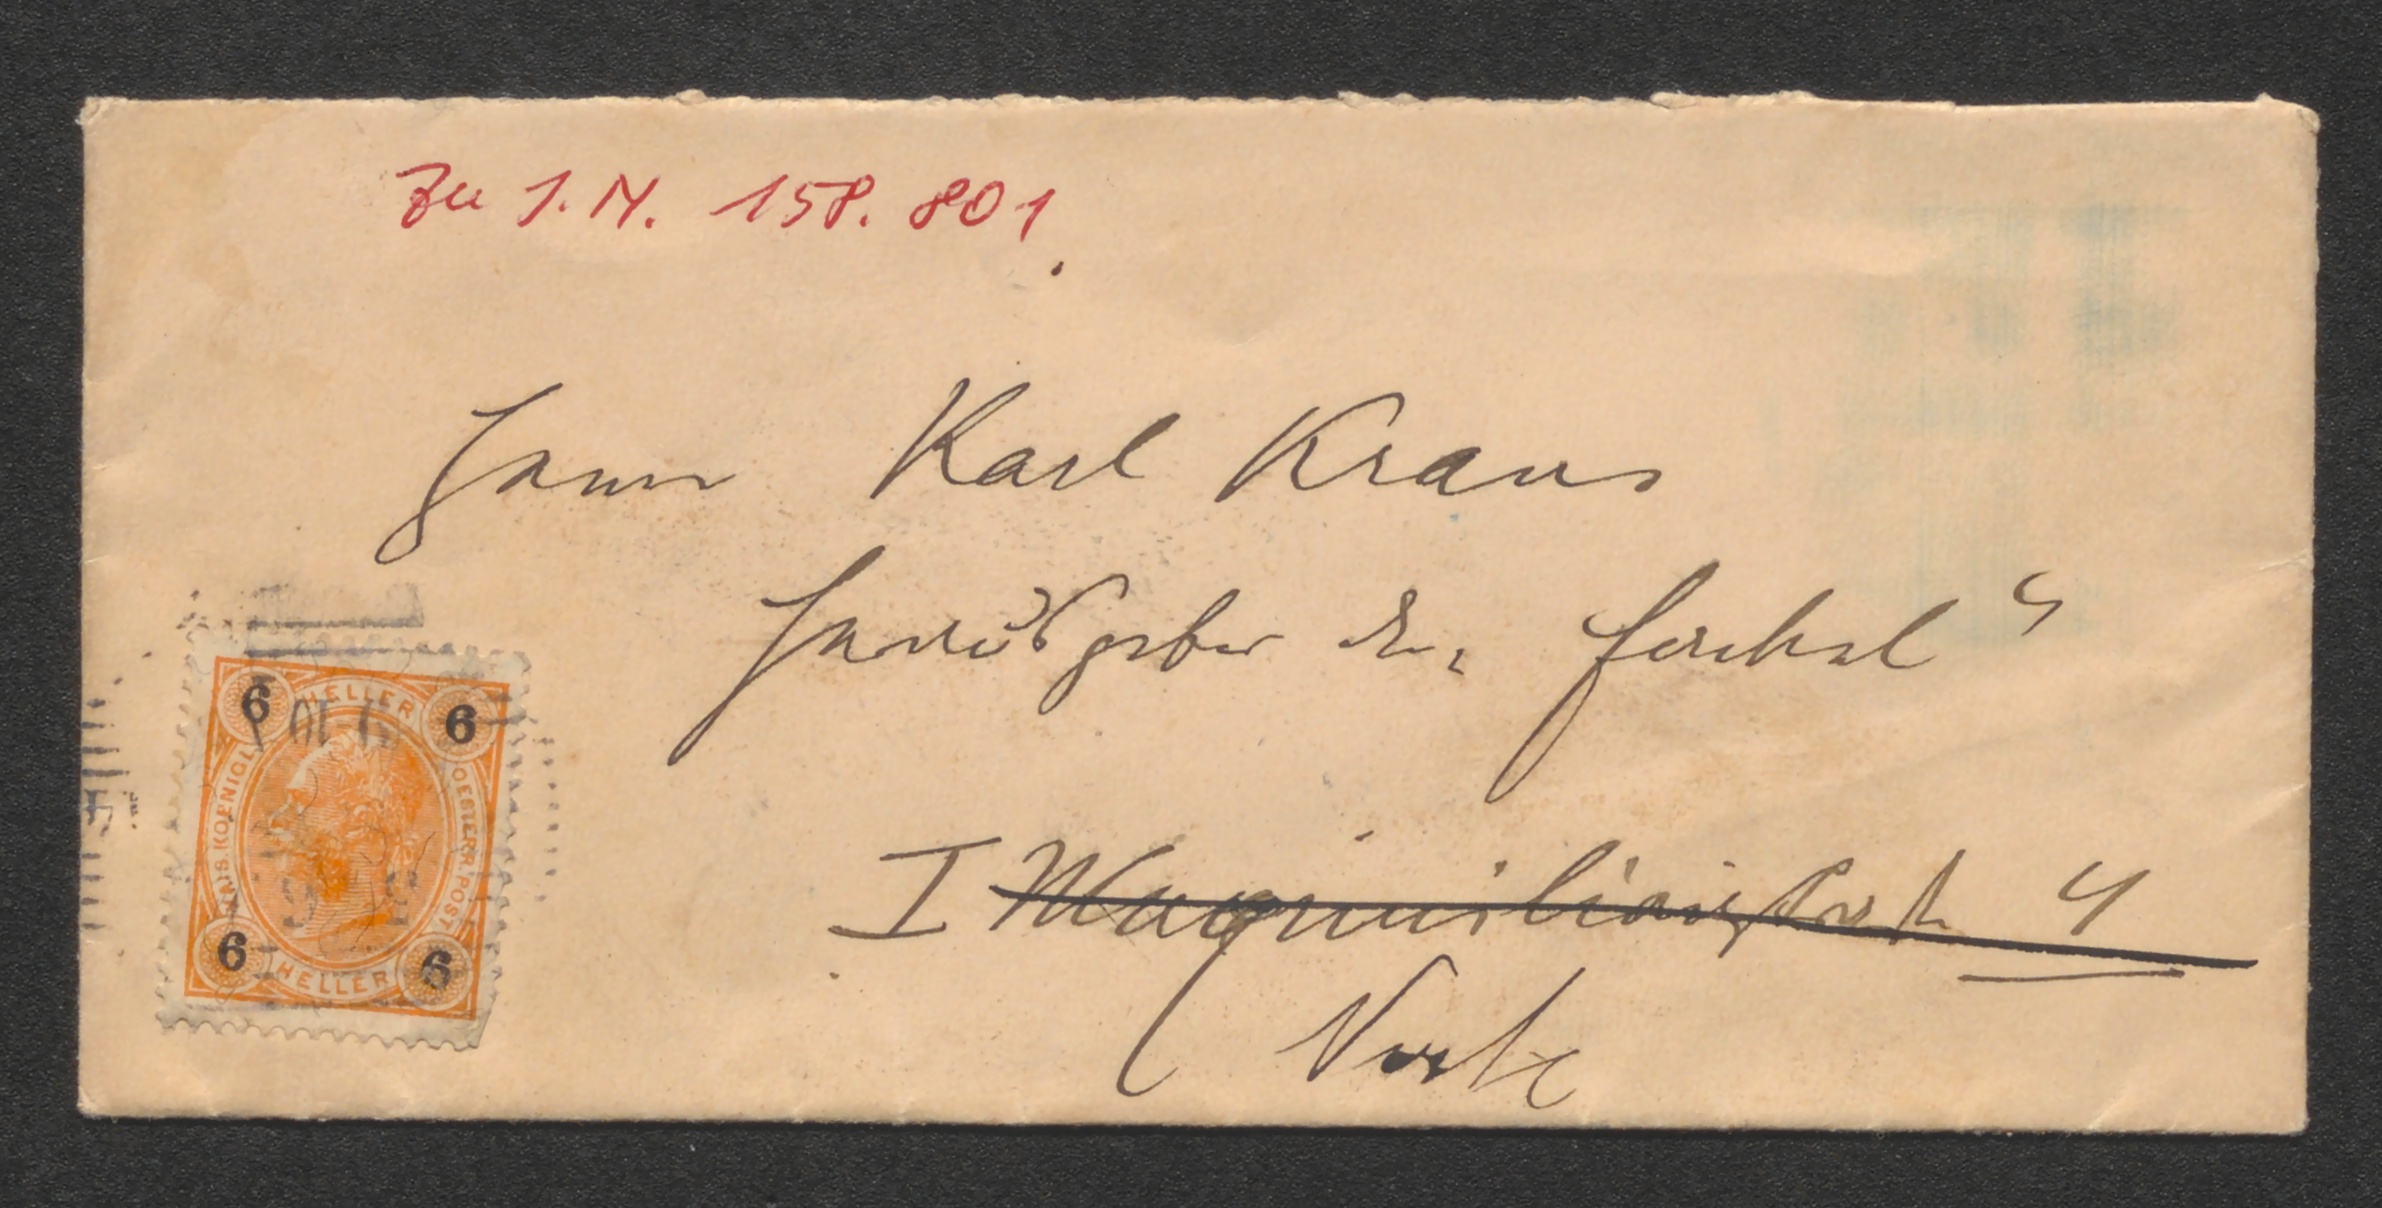 Zu I.N. 158.801
Herrn Karl Kraus
Herausgeber der „Fackel“
I Maximilianstraße 4
6 HELLER 6
KAIS. KOENIGL. OESTERR. POST.
6 HELLER 6